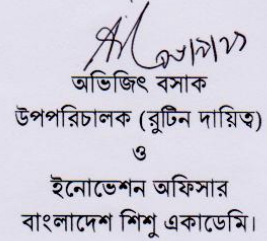 অভিজিৎ বসাক
উপপরিচালক (রুটিন দায়িত্ব)
ও
ইনোভেশন অফিসার
বাংলাদেশ শিশু একাডেমি।